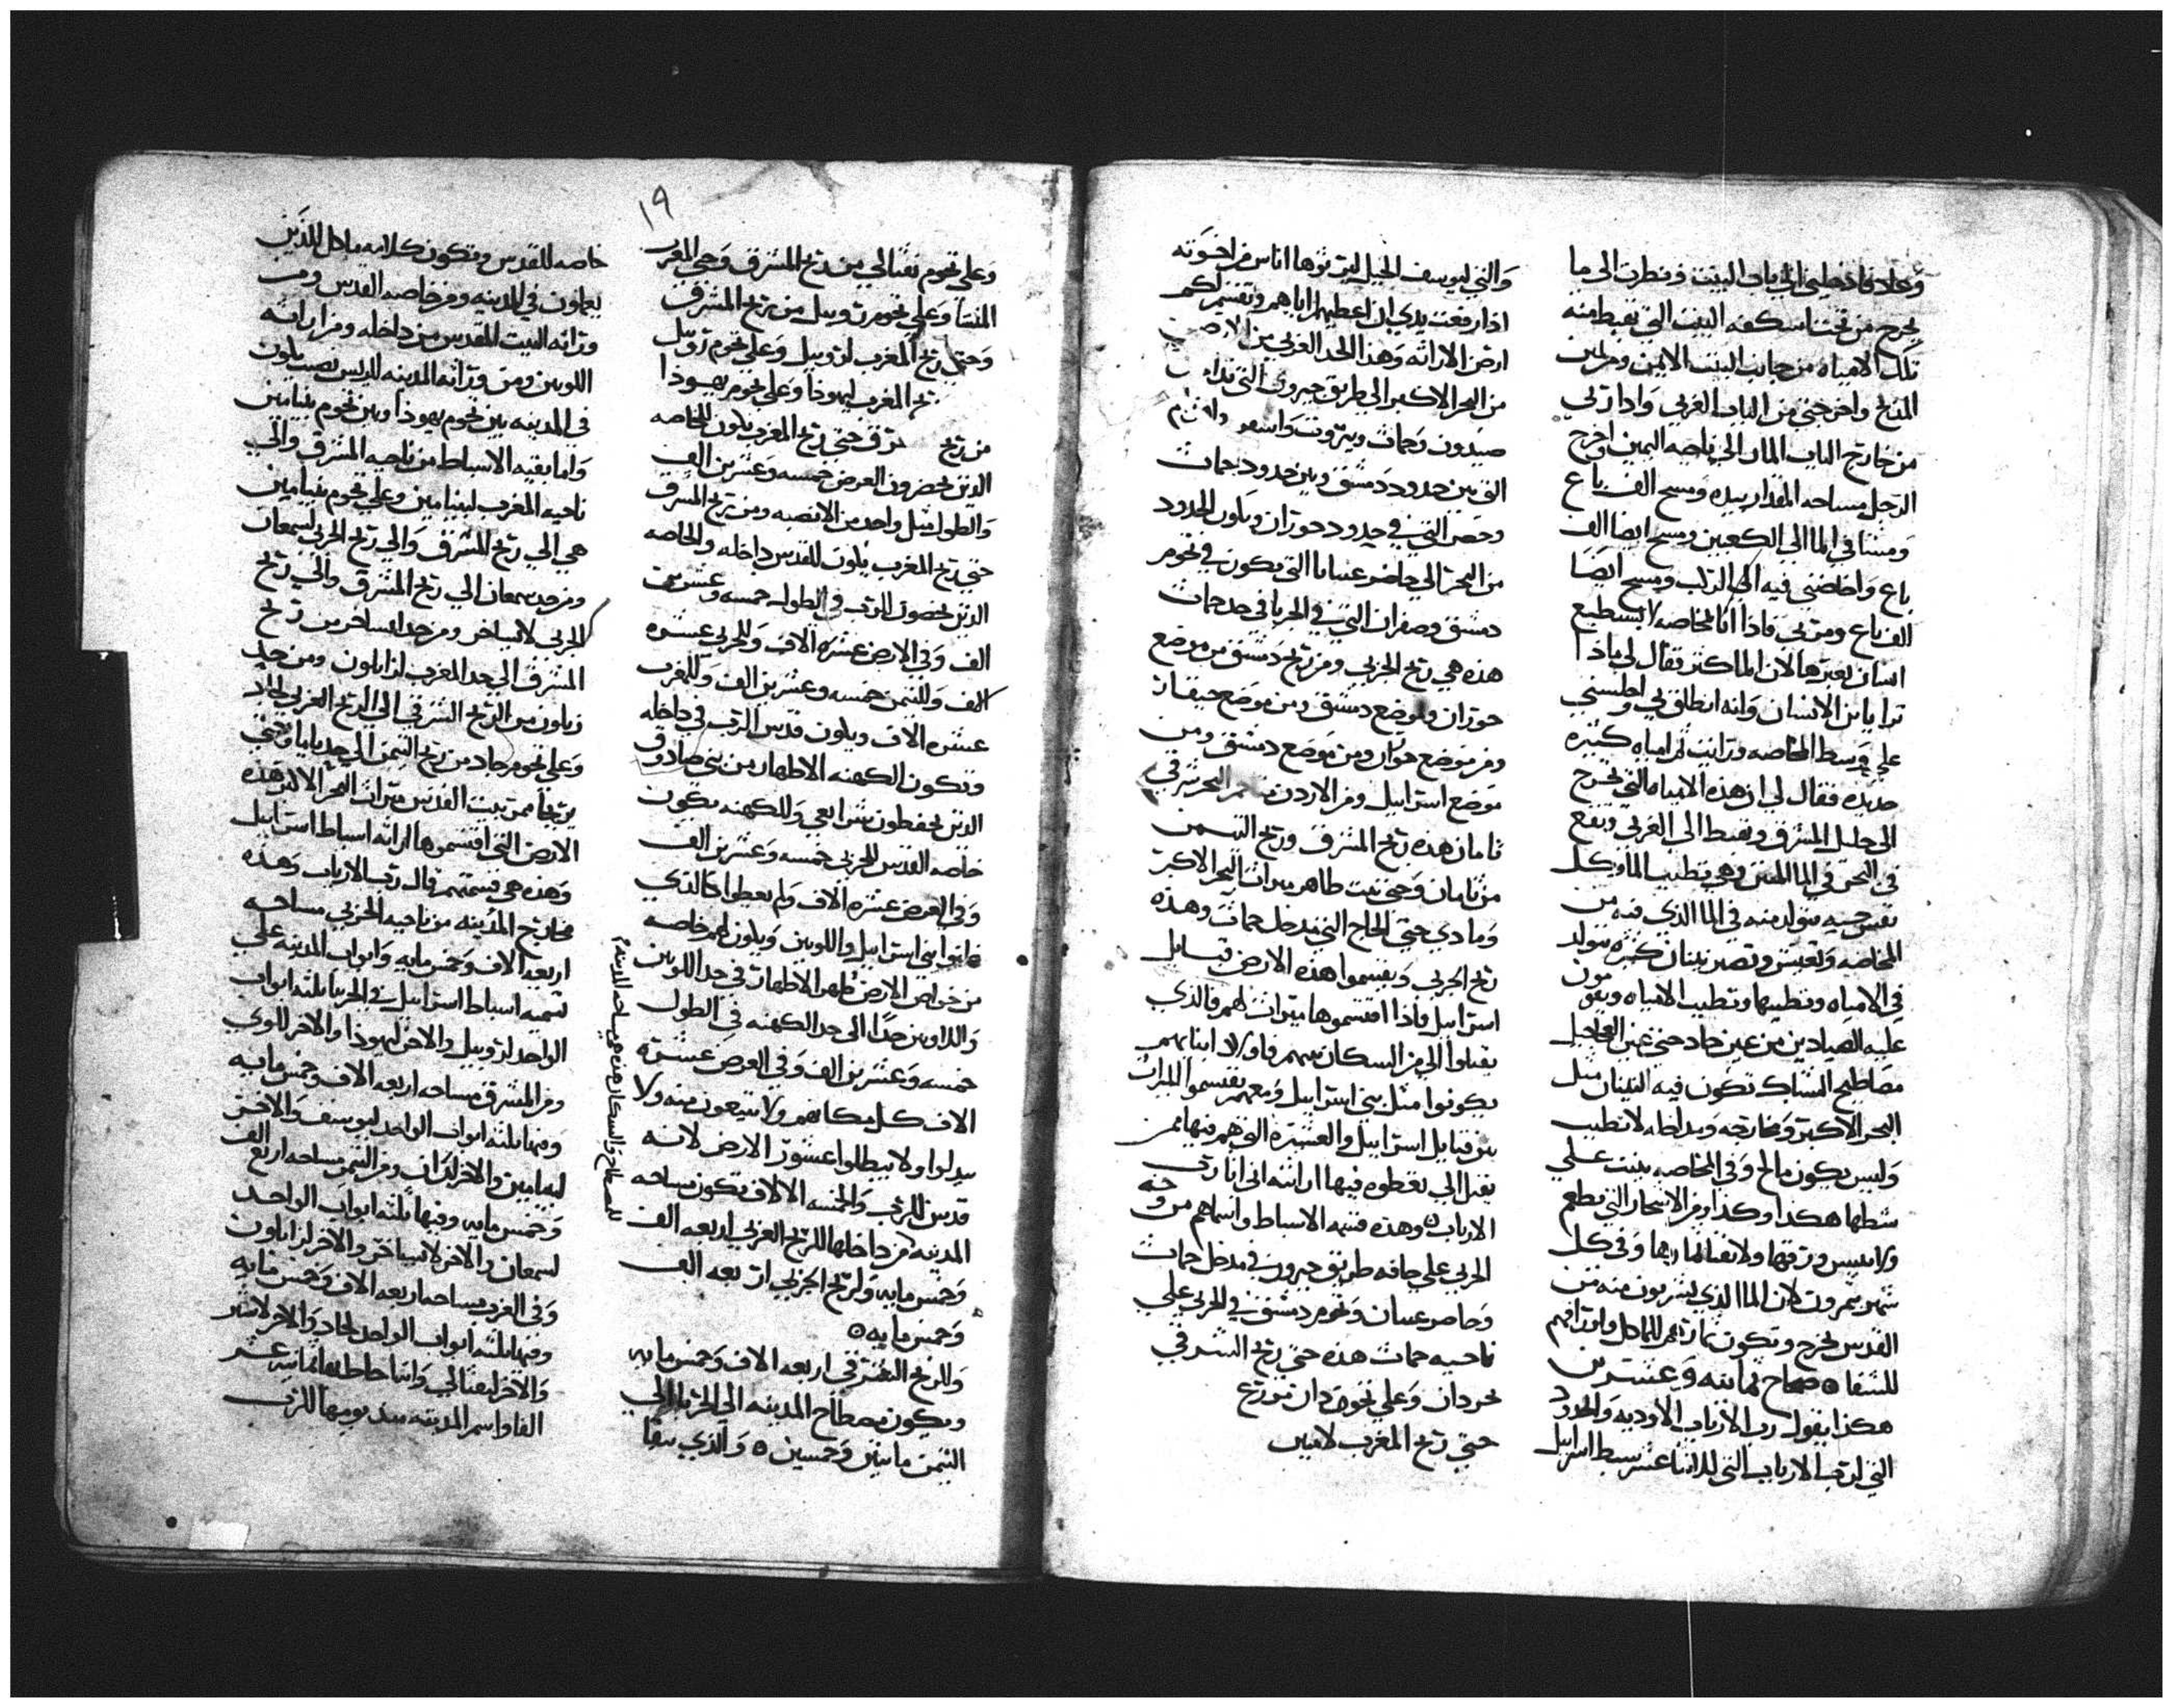 وعلا فادخلني الي باب البيت فنظرت الي ما
يخرج من تحت اسكفه البيت التي تهبط منه
تلك الامياه من جانب البيت الايمن ومن يمين
المذبح واخرجني من الباب الغربي وادار بي
من خارج الباب المار الي ناحيه اليمين اخرج
الرجل مساحه المقدار بيده ومسح الف باع
ومشا في الما الي الكعبين ومسح ايضا الف
باع واخاضني فيه الي الركب ومسح ايضا
الف باع ومر بي فاذا انا لمخاصه لا يستطيع
انسان يعبرها لان الما كثر فقال لي ماذا
ترا يا بن الانسان وانه انطلق بي واجلسني
علي وسط المخاضه ورايت ثم امياه كثيره
جديده فقال لي ان هذه الامياه التي تخرج
الي جليل المشرق وتهبط الي الغربي وتقع
في البحر في الما المنتن وهي تطيب الما وكل
نفس حيه يتولد منه في الما الذي فيه من
المخاضه وتعيش وتصير نينان كثيره يتولد
في الامياه وتطيبها وتطيب الامياه ويقومون
عليه الصيادين من عين جاد حتي عين العاجل
مصاطيح الشباك تكون فيه النينان مثل
البحر الاكبر ومخارجه ومداخله لا تطيب
وليس يكون مالح وفي المخاضه ينبت علي
شطها هكذا وكذا ومن الاشجار التي تطعم
ولا ييبس ورقها ولا تفنا ثمارها وفي كل
شهر يثمرون لان الما الذي يشربون منه من
القدس يخرج وتكون ثمارهم للماكل واوراقهم
للشفا ٥ صحاح ثمانيه وعشرين
هكذا يقول رب الارباب الاوديه والحدود
التي لرب الارباب التي للاثنا عشر سبط اسرايل
والتي ليوسف الجبل ليرثوها اناس من اخوته
اذا رفعت يدي ان اعطيهم لاباهم وتقسم لكم
ارض الاراثه وهذا الحد الغربي من الارض
من البحر الاكبر الي طريق جبرون التي تدا
صيدون وحماث وبيروت واسعر
التي بين حدود دمشق وبين حدود حماث
وحصر التي في حدود حوران ويكون الحدود
من البحر الي حاضر عسانا التي يكون في تخوم
دمشق وصفران التي في الجربا في حد حماث
هذه هي ريح الجربي ومن ريح دمشق من موضع
حوران وموضع دمشق ومن موضع جيقات
ومن موضع حوران ومن موضع دمشق ومن
موضع اسرايل ومن الاردن البحر شرقي
تامان هذه ريح المشرق وريح التيمن
من تامان وحتي بيت طاهر ميراث البحر الاكبر
وما دي حتي الحاج التي مدخل حماث وهذه
ريح الجربي ويقسموا هذه الارض قبايل
اسرايل فاذا اقتسموها ميراث لهم فالذي
يقبلوا الي من السكان بينهم فاولاد ابناهم
يكونوا مثل بني اسرايل ومعهم يقتسموا الميراث
بين قبايل اسرايل والعشيره التي هم فيها من
يقبل الي تعطوه فيها اراثته اني انا رب
الارباب ٥ وهذه قسمه الاسباط واسماهم من وجه
الجربي علي حافه طريق جبرون في مدخل حماث
وحاصر عسان وتخوم دمشق في الجربي علي
ناحيه حماث هذه حتي ريح الشرقي
لحردان وعلي تخوم دان من ريح
حتي ريح المغرب لاشير
١٩
وعلي تخوم نفتالي من ريح المشرق وحتي المغرب
المنشا وعلي تخوم روبيل من ريح المشرق
وحتي ريح المغرب لروبيل وعلي تخوم روبيل
ريح المغرب ليهوذا وعلي تخوم يهوذا
من ريح حتي ريح المغرب يكون الخاصه
الذين يحضرون العرض خمسه وعشرين الف
والطول مثل واحد من الانصبه ومن ريح المشرق
حتي ريح المغرب يكون للقدس داخله والخاصه
الذين يخصون الرب في الطول خمسه وعشرين
الف وفي الارض عشره الاف وللجربي عشره
الف وللتيمن خمسه وعشرين الف وللمغرب
عشره الاف ويكون قدس الرب في داخله
وتكون الكهنه الاطهار من بني صادوق
الذين يحفظون شرايعي وللكهنه يكون
خاصه القدس للجربي خمسه وعشرين الف
وفي العرض عشره الاف ولم يعطوا كالذي
خانوا بني اسرايل واللويين ويكون لهم خاصه
من خواص الارض طهر الاطهار في حد اللويين
واللاويين حدا الي حد الكهنه في الطول
خمسه وعشرين الف وفي العرض عشره
الاف كل مكانهم ولا يبيعون منه ولا
يبدلوا ولا يبطلوا عشور الارض لانه
قدس للرب والخمسه الالاف تكون مساحه
المدينه من داخلها للريح الغربي اربعه الف
وخمس مايه ولريح الجربي اربعه الف
وخمس مايه ٥
وللريح الشرقي اربعه الاف وخمس مايه
ويكون مصطاح المدينه الي الجربا الي
التيمن مايتين وخمسين ٥ والذي يبقا
للمصطاح والسكان هذه هي مساحه المدينه
خاصه للقدس وتكون كلاته ماكل للذين
يعملون في المدينه ومن خاصه القدس ومن
وراثه البيت للقدس من داخله ومن اراثه
اللويين ومن وراثه المدينه للريس نصيب يكون
في المدينه بين تخوم يهوذا وبين تخوم بنيامين
واما بقيه الاسباط من ناحيه المشرق والي
ناحيه المغرب لبنيامين وعلي تخوم بنيامين
هي الي ريح المشرق والي ريح الجربي لسمعان
ومن حد سمعان الي ريح المشرق والي ريح
الجربي لايساخر ومن حد ايساخر من ريح
المشرق الي حد المغرب لزابلون ومن حد
زبلون من الريح الشرقي الي الريح الغربي لجاد
وعلي تخوم جاد من ريح التيمن الي حد بابا وحتي
يرتجا ممر بيت القدس ميراث البحر الاكبر هذه
الارض التي اقتسموها اراثه اسباط اسرايل
وهذه هي قسمتهم قال رب الارباب وهذه
مخارج المدينه من ناحيه الجربي مساحه
اربعه الاف وخمس مايه وابواب المدينه علي
تسميه اسباط اسرايل في الجربا ثلثه ابواب
الواحد لروبيل والاخر ليهوذا والاخر للاوي
ومن المشرق مساحه اربعه الاف وخمس مايه
وفيها ثلثه ابواب الواحد ليوسف والاخر
لبنيامين والاخر لدان ومن التيمن مساحه اربع الف
وخمس مايه وفيها ثلثه ابواب الواحد
لسمعان والاخر لايساخر والاخر لزابلون
وفي الغرب مساحه اربعه الاف وخمس مايه
وفيها ثلثه ابواب الواحد لجاد والاخر لاشير
والاخر لنفتالي واما حايطها ثمانيه عشر
الفا واسم المدينه منذ يومها للرب